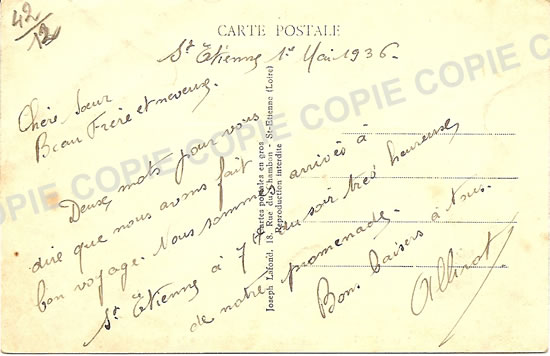 42/12
CARTE POSTALE
St Etienne 1er Mai 1936.
Chère Sœur
Beau Frère et neveux.
Deux mots pour vous
dire que nous avons fait
bon voyage. Nous sommes arrivés à
St Etienne à 7h du soir très heureuse
de notre promenade.
Bons baisers à tous.
Cartes postales en gros
Joseph Lafond, 18, Rue du Chambon - St-Etienne (Loire)
Reproduction interdite
COPIE COPIE COPIE COPIE COPIE COPIE